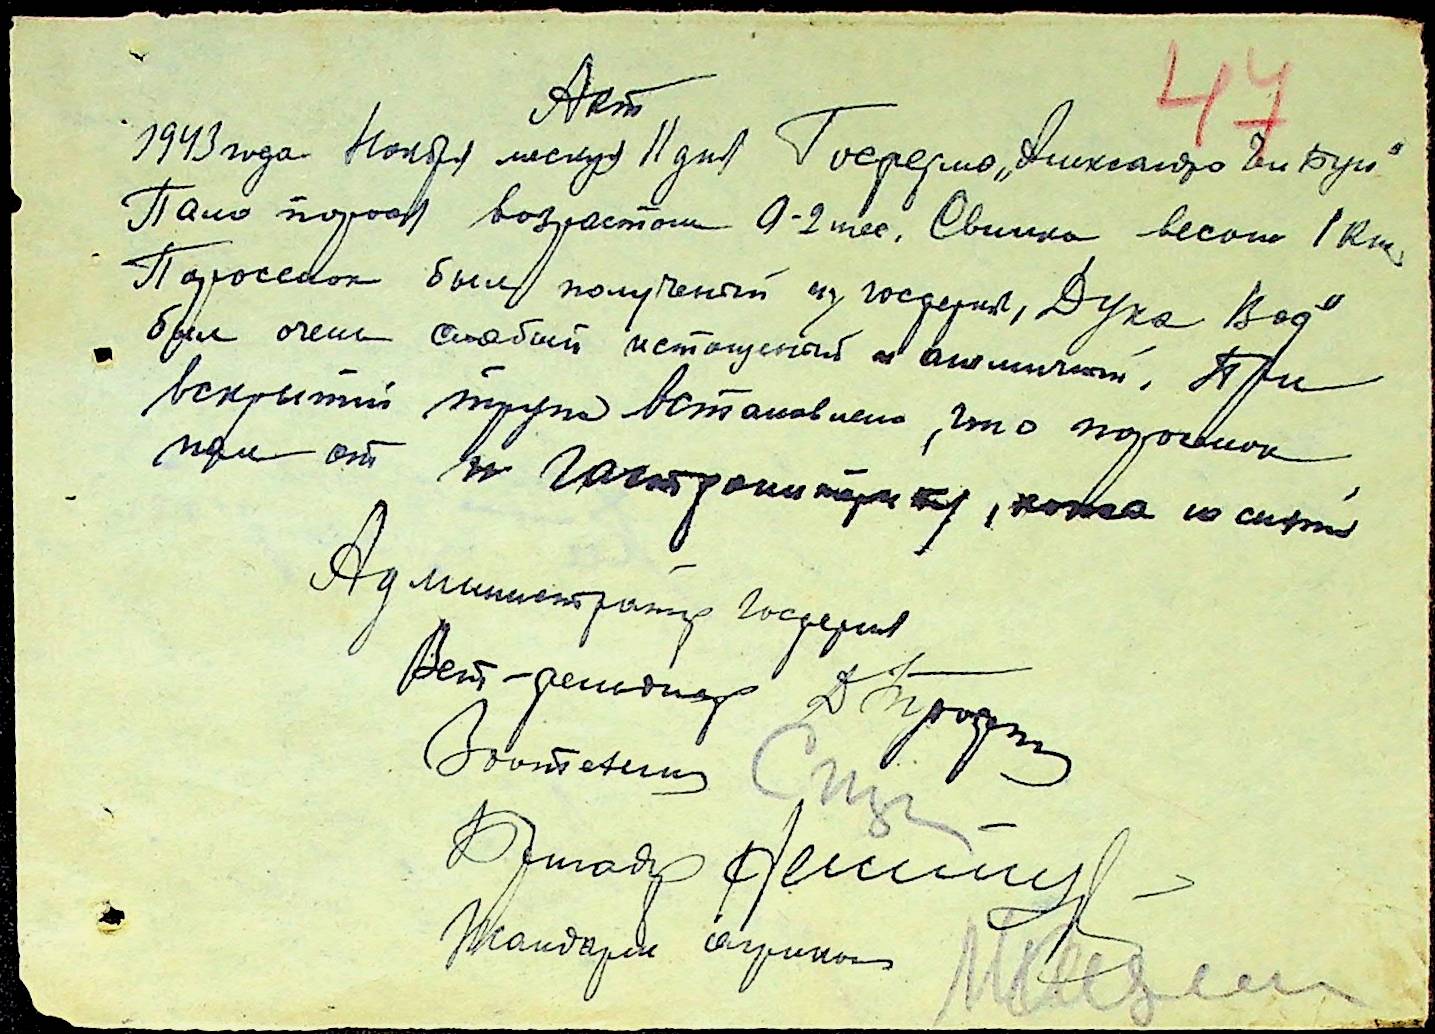 47
Акт
1943 года Ноября месяця 11 дня Госферма „Александро Чел Бун"
Пало порося возрастом 0-2 мес. Свинка весом 1 кг.
Поросенок был полученый из госфермы „Дука Вод"
был очень слабый истощеный и анемичный. При
вскрытий трупа встановлено, что поросенок
пал от гастроэнтерита, кожа не снята
Администратор госфермы
Вет-фельдшер Д
Зоотехник
Бригадир
Жандарм аграном